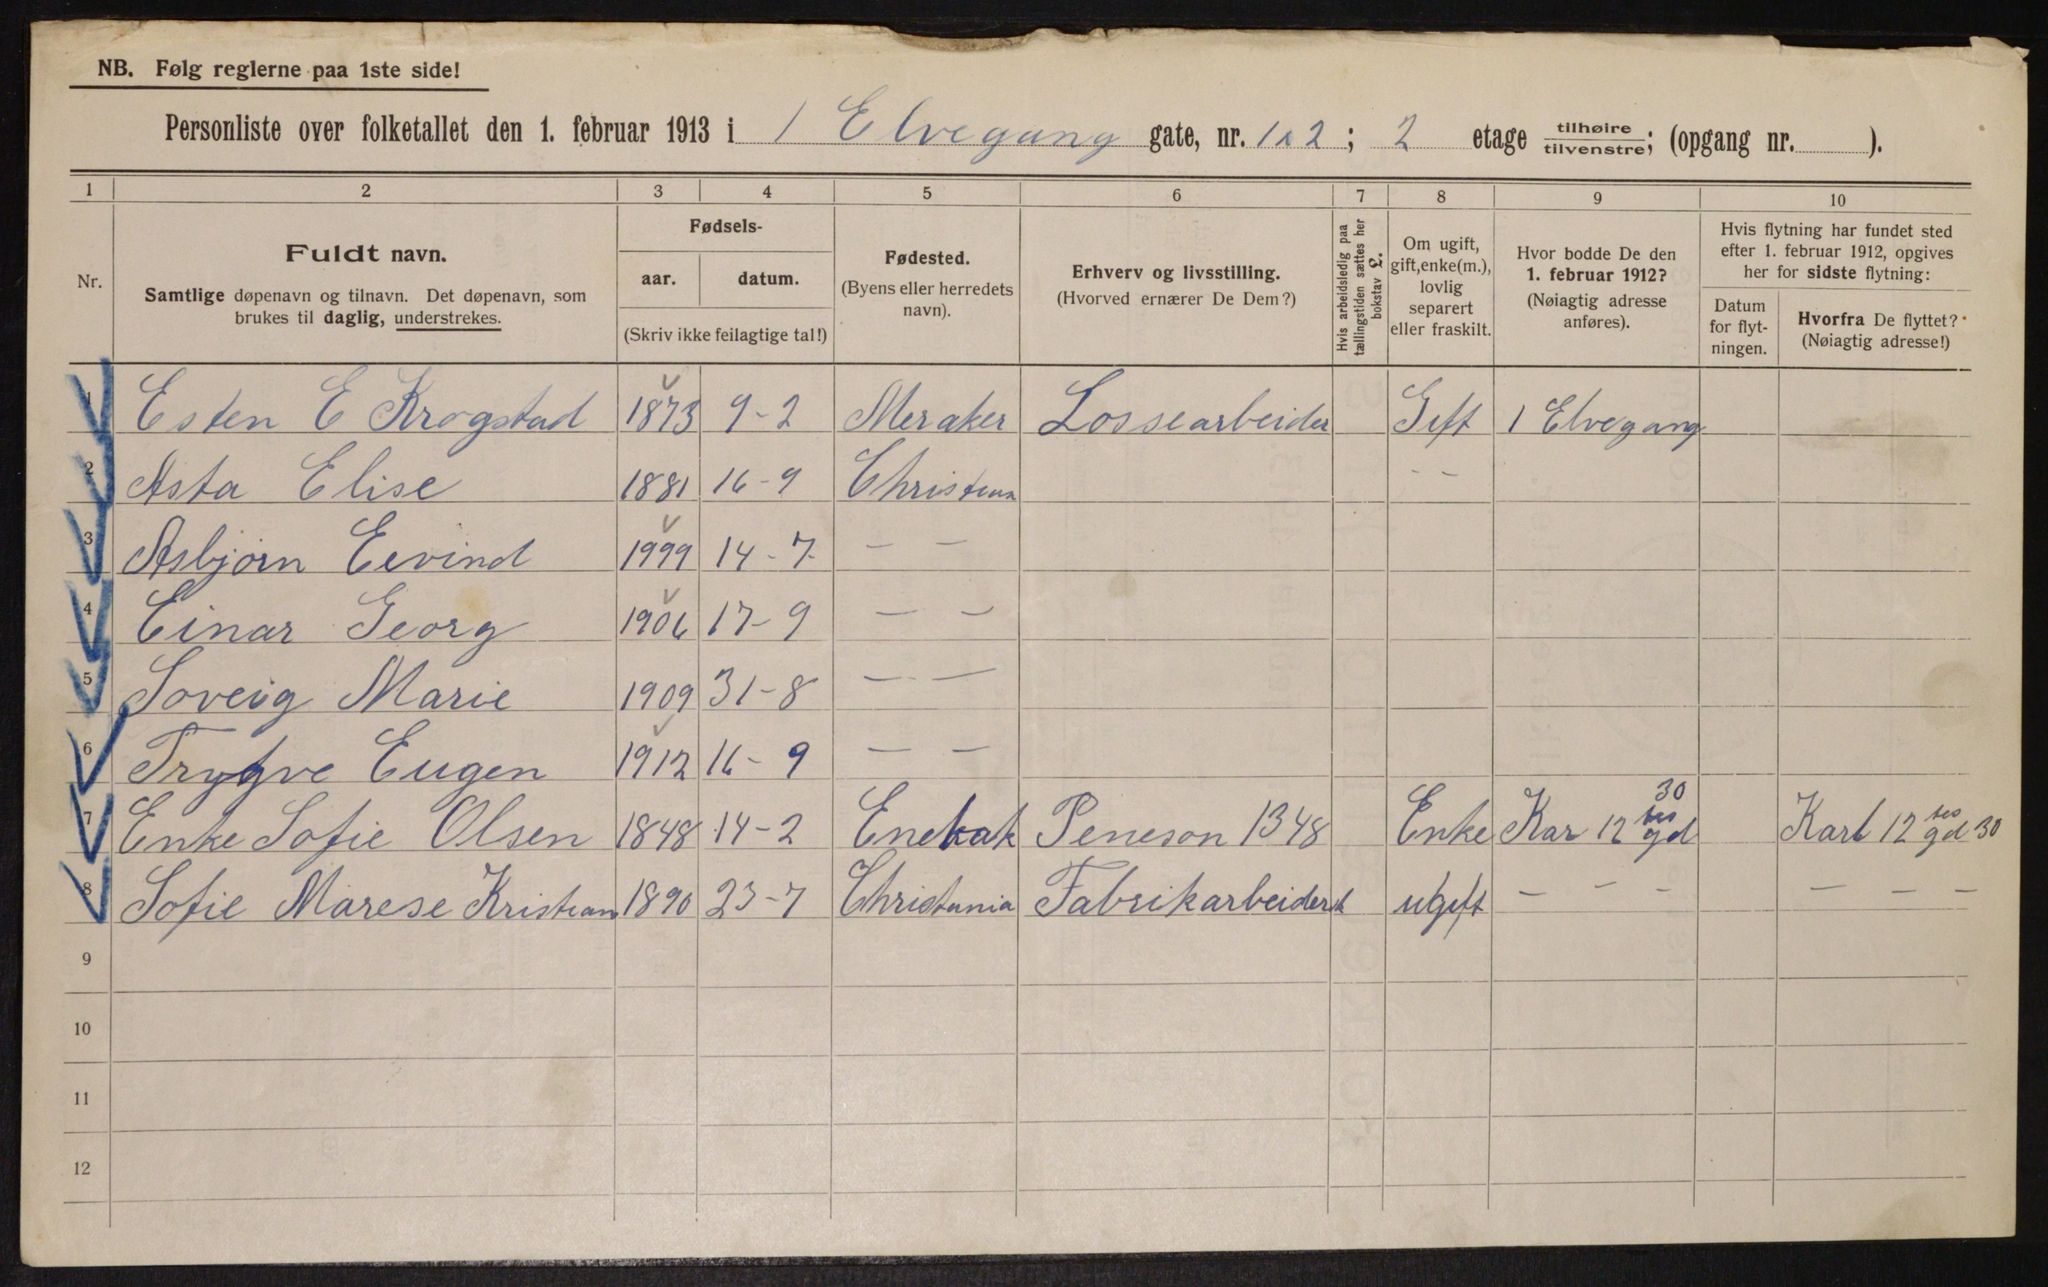 NB. Følg reglerne paa 1ste side!
Personliste over folketallet den 1. februar 1913 i 1 Elvegang gate, nr. 1 2; 2 etage tilhøire tilvenstre; (opgang nr. ).
1 2 3 4 5 6 7 8 9 10
Nr.
Fuldt navn.
Samtlige døpenavn og tilnavn. Det døpenavn, som
brukes til daglig, understrekes.
Fødsels-
aar. datum.
(Skriv ikke feilagtige tal!)
Fødested.
(Byens eller herredets
navn).
Erhverv og livsstilling.
(Hvorved ernærer De Dem?)
Hvis arbeidsledig paa
tællingstiden sættes her
bokstav L.
Om ugift,
gift, enke(m.),
lovlig
separert
eller fraskilt.
Hvor bodde De den
1. februar 1912?
(Nøiagtig adresse
anføres).
Hvis flytning har fundet sted
efter 1. februar 1912, opgives
her for sidste flytning:
Datum
for flyt-
ningen.
Hvorfra De flyttet?
(Nøiagtig adresse!)
1 Esten E Krogstad 1873 9-2 Meraker Lossearbeider Gift 1 Elvegang
2 Asta Elise 1881 16-9 Christian - -
3 Asbjørn Eevind 1999 14-7 - -
4 Einar Georg 1906 17-9 - -
5 Soveig Marie 1909 31-8 - -
6 Trygve Eugen 1912 16-9 - -
7 Enke Sofie Olsen 1848 14-2 Enebak Peneson 1348 Enke Kar 12 tes gd 30 Karl 12 tes gd 30
8 Sofie Marese Kristian 1890 23-7 Christania Fabrikarbeidersk ugift - - - - - -
9
10
11
12